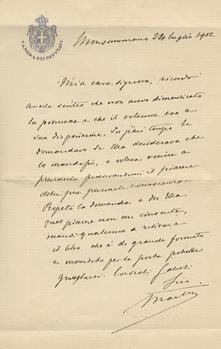 CAMERA DEI DEPUTATI
Monsummano 24 luglio 1902
Mia cara signora, ricordo
averle scritto che non avevo dimenticato
la promessa e che il volume era a
sua disposizione. In pari tempo Le
domandavo se Ella desiderava che
lo mandassi, o voleva venire a
prenderlo procurandomi il piacere
della sua personale conoscenza.
Ripeto la domanda a Lei. Ella
qual piacere non mi consente,
mandi qualcuno a ritirare
il libro che è di grande formato
e mandato per la posta potrebbe
guastarsi. Cordiali saluti.
Suo
Martini